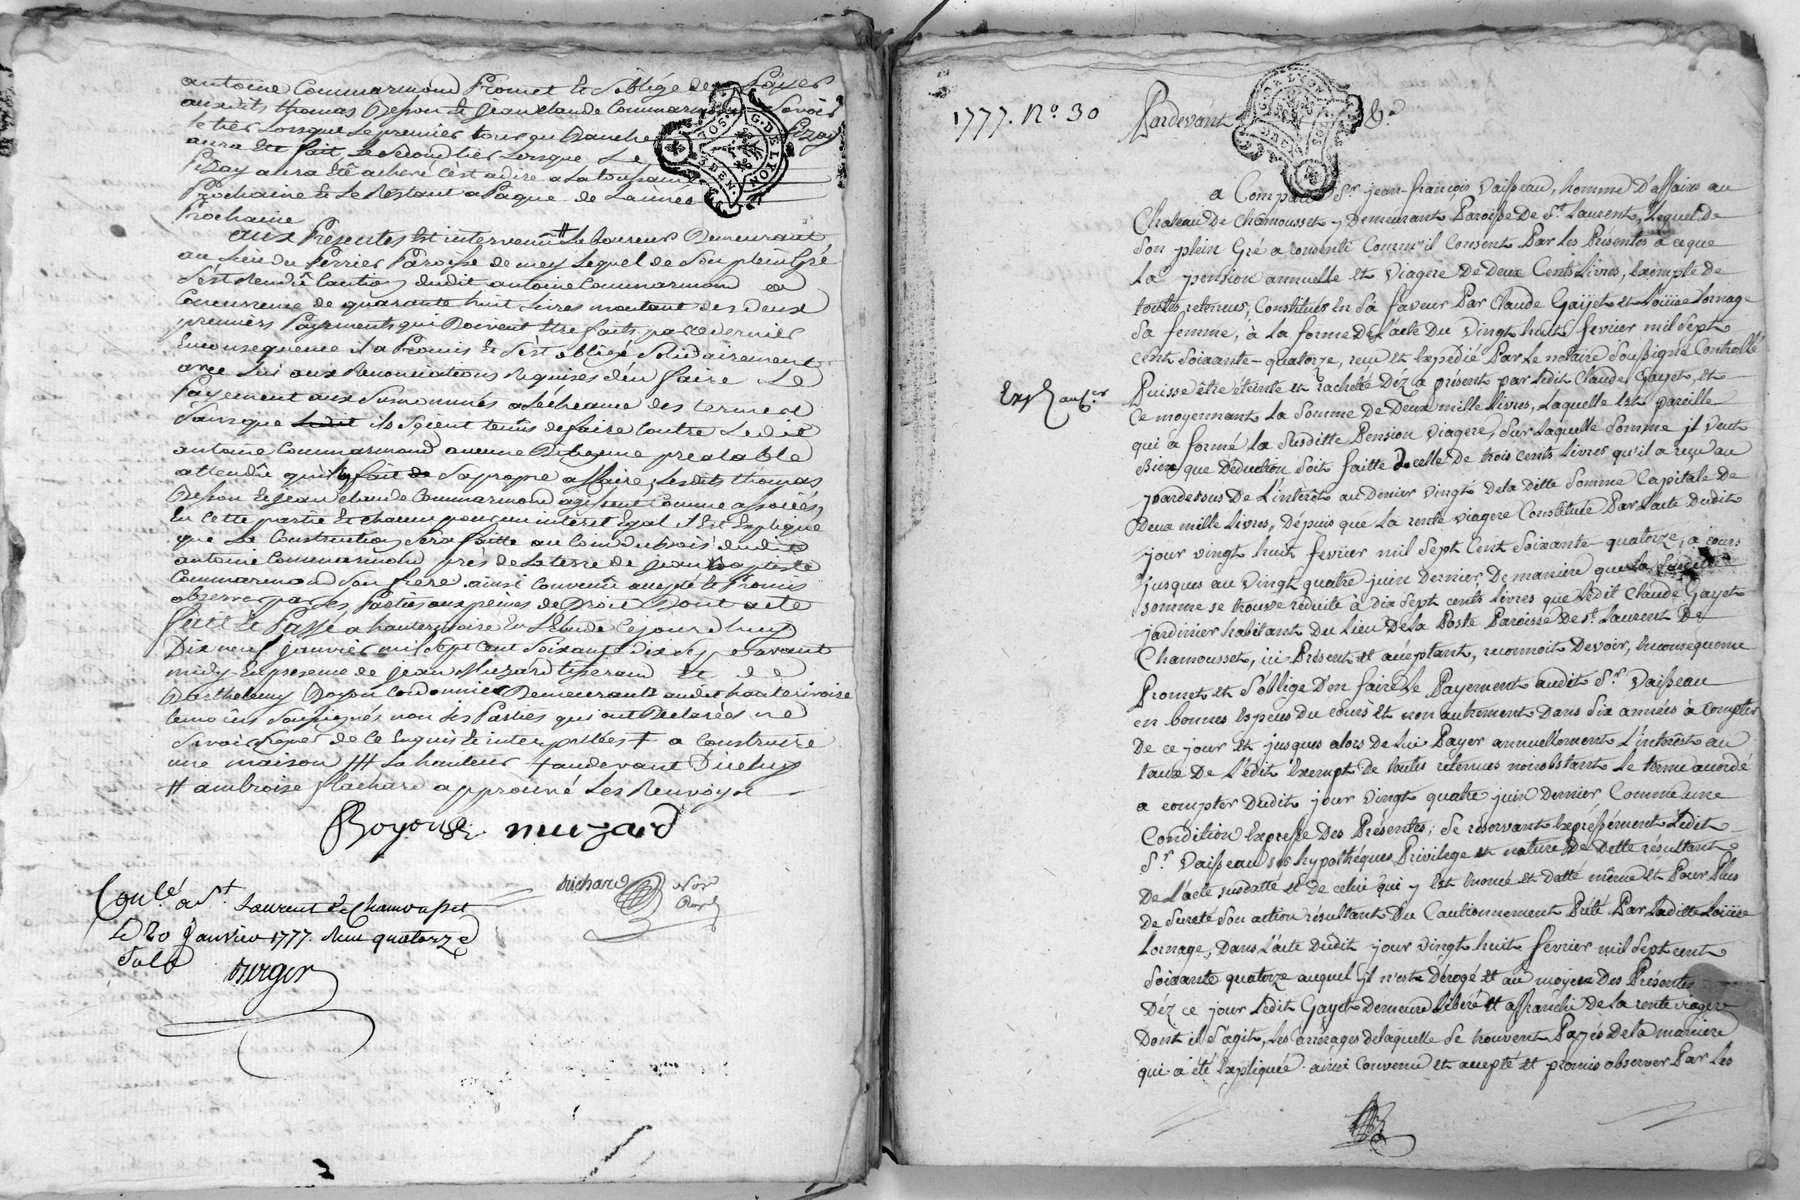 antoine Commarmond Promet et s'oblige de Payer
auxdits thomas Besson et jean claude Commarmond Savoir
le tier Lorsque le premier tour qui Branche
aura été fait, le second tier Lorsque Le
Pizay aura été achevé c'est a dire a La toussaint
Prochaine et Le Restant a Paque de L'année
Prochaine
aux Présentes est intervenu # Laboureur Demeurant
au Lieu du perrier Paroisse de mey Lequel de Son plein Gré
s'est Rendu Caution dudit antoine Commarmond a
Concurrence de quarante huit Livres montant des deux
premiers Payements qui Doivent être faits par ce dernier
En consequence il a Promis et s'est obligé Solidairement
avec Lui aux Renonciations Requises d'en faire Le
Payement aux Surnommés a L'écheance des termes
Sans que Ledit ils Soient tenus de faire Contre Ledit
antoine Commarmond aucune prealable
attendu qu'il fait de Sa propre affaire, Lesdits thomas
Besson et jean claude Commarmond agissent Comme associés
En Cette partie et chacun pour un interet Egal il Est Expliqué
que La Construction Sera faitte au Coin du bois dudit
antoine Commarmond près de La terre de jean baptiste
Commarmond Son frere. ainsi Convenu accepté et Promis
observer par les Parties aux peines de Droit Dont acte
fait et Passé a hauterivoire En L'Etude Cejourd'huy
Dix neuf janvier mil Sept Cent Soixante Dix Sept avant
midy En presence de jean Muzard tisserand et de
Barthelemy Boyon Cordonnier Demeurants audit hauterivoire
temoins Soussignés non Les Parties qui ont Declarées ne
Savoir Signer de Ce Enquis et interpellées + a Construire
une maison /// La hauteur + audevant D'iceluy
# ambroise flachard approuvé Les Renvoys
Boyon muzard
Con.lé a S.t Laurent de Chamousset
Le 20 Janvier 1777. Reçu quatorze
Sols
Durger
Richard Not.
Royal
G. DE LYON
1777. N.o 30 Pardevant &a
a Comparu S.r jean-françois Vaisseau, homme D'affaires au
Chateau De Chamousset y Demeurant Paroisse De S.t Laurent, Lequel De
Son plein Gré a Consenti Comme il Consent Par Les Présentes à ce que
La pension annuelle et Viagere De Deux Cents Livres, Exempte de
toutes retenues, Constituée En Sa faveur Par Claude Gayet et Loüise Lornage
Sa femme, à La forme De L'acte Du Vingt huit fevrier mil Sept
Cent Soixante-quatorze, reçu et Expedié Par Le notaire Soussigné Controllé
Puisse être éteinte et rachetée Déz a présent par Ledit Claude Gayet, et
Ce moyennant La Somme De Deux mille Livres, Laquelle Est pareille
qui a formé La Susditte Pension Viagere, Sur Laquelle Somme il Veut
Bien que Déduction Soit faitte de celle De trois Cents Livres qu'il a reçu au
pardessus De L'interêt au Denier Vingt De La Ditte Somme Capitale De
Deux mille Livres, Dépuis que La rente viagere Constituée Par L'acte Dudit
jour vingt huit fevrier mil Sept Cent Soixante quatorze, a cours
jusques au Vingt quatre juin Dernier, De maniere que La Susditte
Somme Se trouve reduite à Dix Sept cents Livres que Ledit Claude Gayet
jardinier habitant Du Lieu De La Poste Paroisse De S.t Laurent De
Chamousset, ici Présent et acceptant, reconnoit Devoir, En consequence
Promet et S'oblige D'en faire Le Payement audit S.r Vaisseau
en bonnes Especes Du cours et non autrement Dans Six années à Compter
De ce jour et jusques alors De Lui Payer annuellement L'interêt au
taux De L'édit Exempt De toutes retenues nonobstant Le terme accordé
a compter Dudit jour Vingt quatre juin Dernier Comme une
Condition Expresse Des Présentes; Se réservant Expréssément Ledit
S.r Vaisseau Ses hypothéques Privilege et nature De Dette résultant
De L'acte Susdatté et De celui qui y Est Enoncé et Datté même et Pour Plus
De Sureté Son action résultant Du Cautionnement Prêté Par Laditte Loüise
Lornage, Dans L'acte Dudit jour Vingt huit fevrier mil Sept cent
Soixante quatorze auquel il n'est Dérogé et au moyen Des Présentes
Déz ce jour Ledit Gayet Demeure Libéré et affranchi De La rente viagere
Dont il S'agit, Les arrérages De Laquelle Se trouvent Payés De La maniere
qui a été Expliquée. ainsi Convenu et accepté et promis observer Par Les